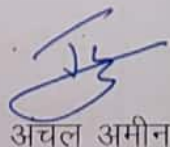 अचल अमीन